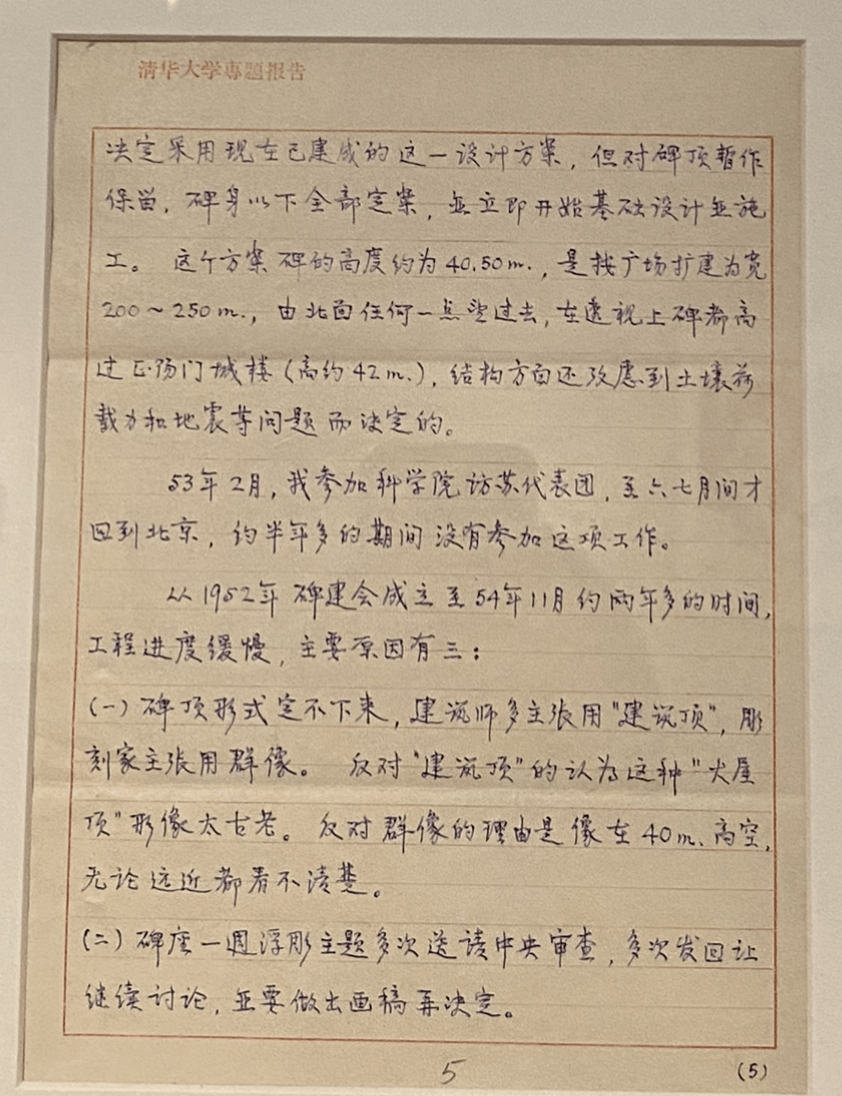 清华大学專題报告
决定采用现在已建成的这一设计方案，但对碑顶暂作
保留，碑身以下全部定案，並立即开始基础设计並施
工。 这个方案碑的高度约为40.50m.，是按广场扩建为宽
200~250m.，由北面任何一点望过去，在透视上碑都高
过正阳门城楼（高约42m.），结构方面还攷虑到土壤荷
载力和地震等问题而决定的。
53年2月，我参加科学院访苏代表团，至六七月间才
回到北京，约半年多的期间没有参加这项工作。
从1952年碑建会成立至54年11月约两年多的时间，
工程进度缓慢，主要原因有三：
(一)碑顶形式定不下来，建筑师多主张用"建筑顶"，彫
刻家主张用群像。 反对"建筑顶"的认为这种"大屋
顶"形像太古老。反对群像的理由是像在40m.高空，
无论远近都看不清楚。
(二)碑座一週浮彫主题多次送请中央审查，多次发回让
继续讨论，並要做出画稿再决定。
5
(5)